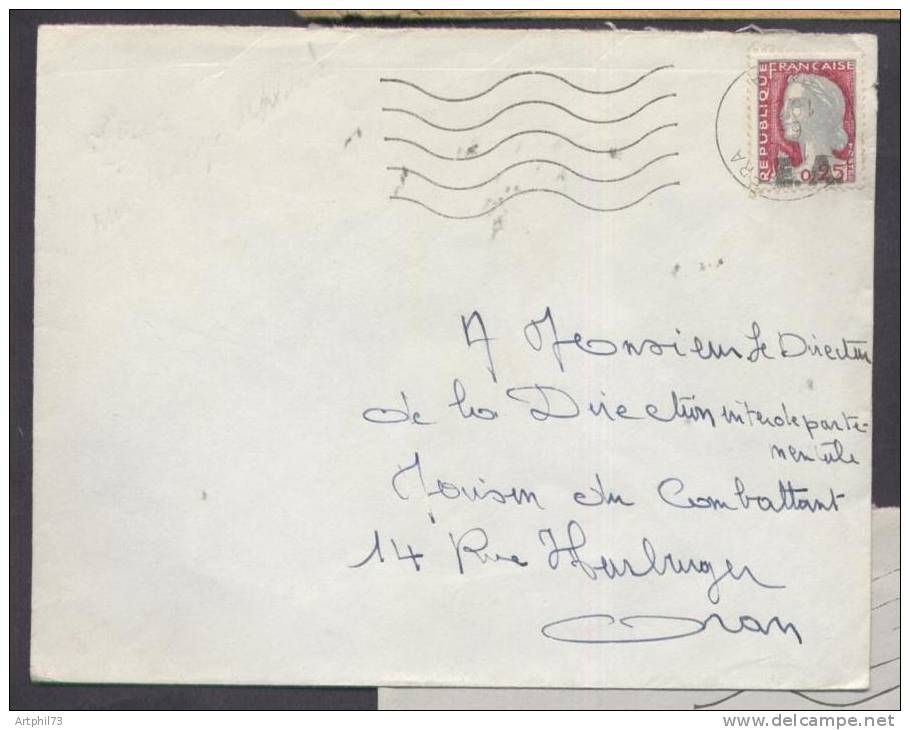 REPUBLIQUE FRANÇAISE
RA
E A
0,25
A Monsieur Le Directeur
de la Direction interdeparte-
mentale
Maison du Combattant
14 Rue
Oran
Artphil73
www.delcampe.net